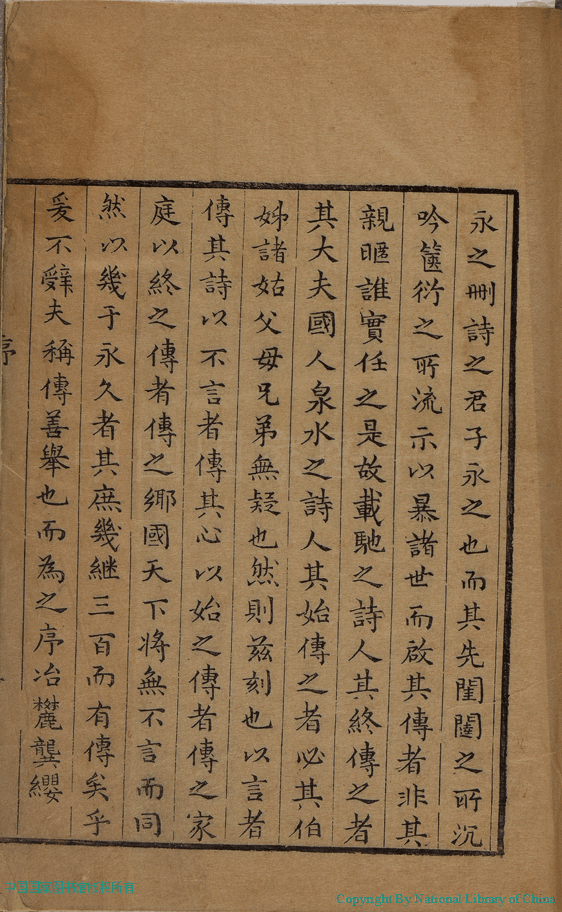 永之刪詩之君子永之也而其先閨闥之所沉
吟篋衍之所流示以暴諸世而啟其傳者非其
親暱誰實任之是故載馳之詩人其終傳之者
其大夫國人泉水之詩人其始傳之者必其伯
姊諸姑父母兄弟無疑也然則茲刻也以言者
傳其詩以不言者傳其心以始之傳者傳之家
庭以終之傳者傳之鄉國天下將無不言而同
然以幾于永久者其庶幾継三百而有傳矣乎
爰不辭夫稱傳善舉也而為之序冶麓龔纓
序
Copyright By National Library of China